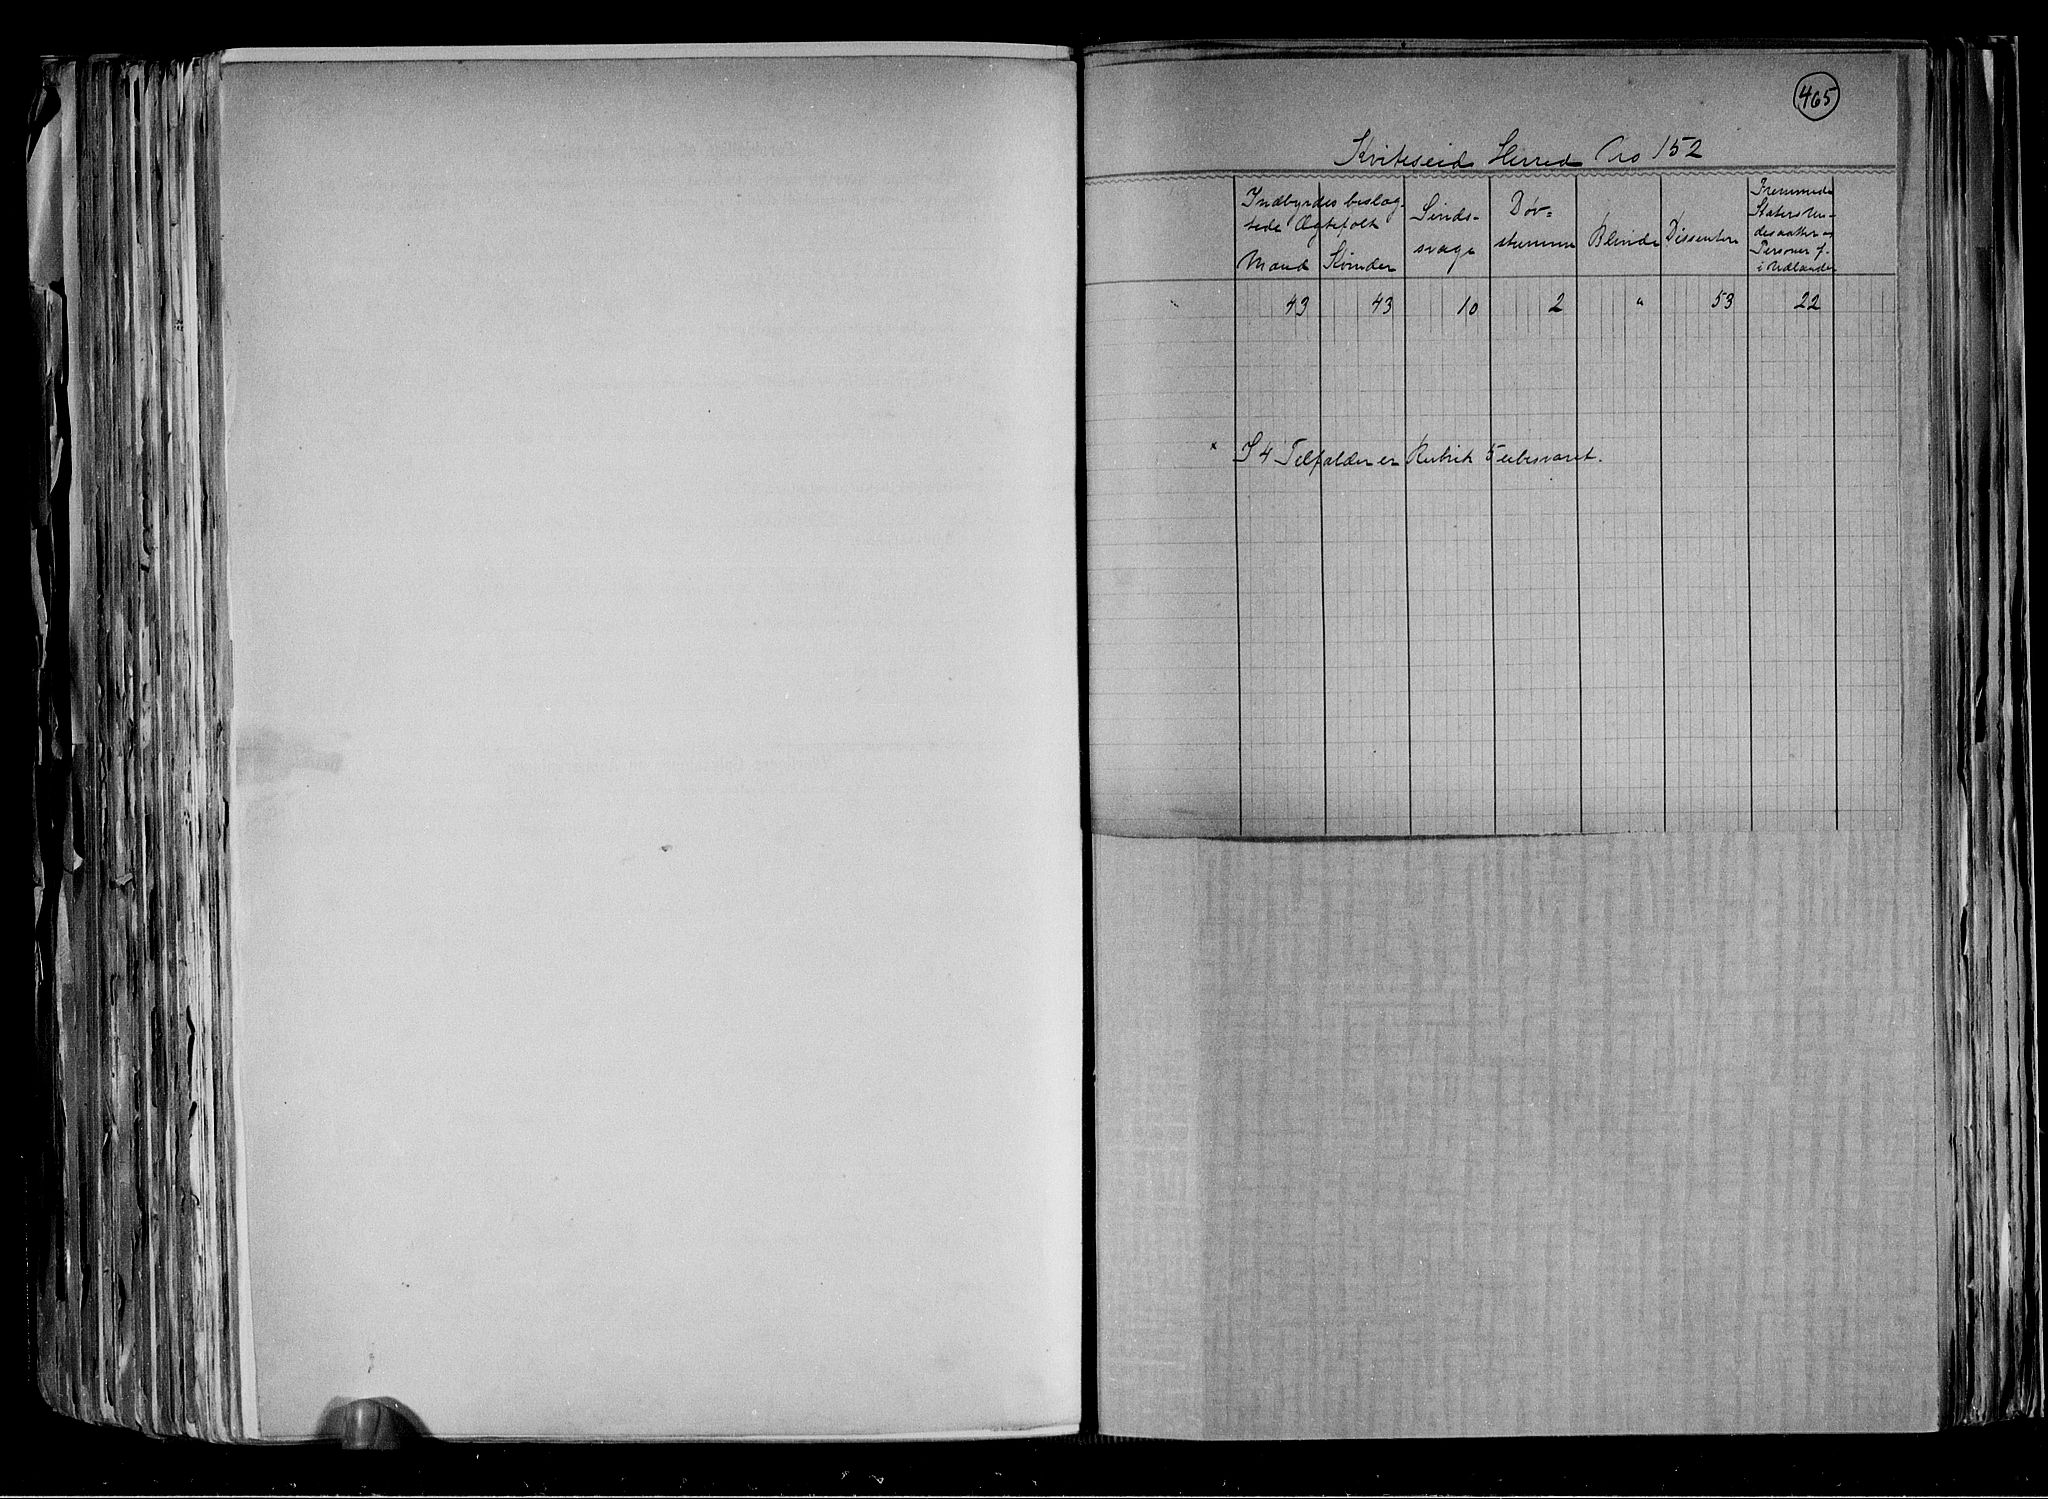 465
Kviteseid Herred No 152
Indbyrdes beslæg-
tede Ægtefolk
Mænd Kvinder
Sinds-
svage
Døv=
stumme
Blinde
Dissentere
Fremmede
Staters Un-
dersaatter og
Personer f.
i Udlandet
43 43 10 2 " 53 22
× I 4 Tilfælder er Rubrik 5 ubesvaret.